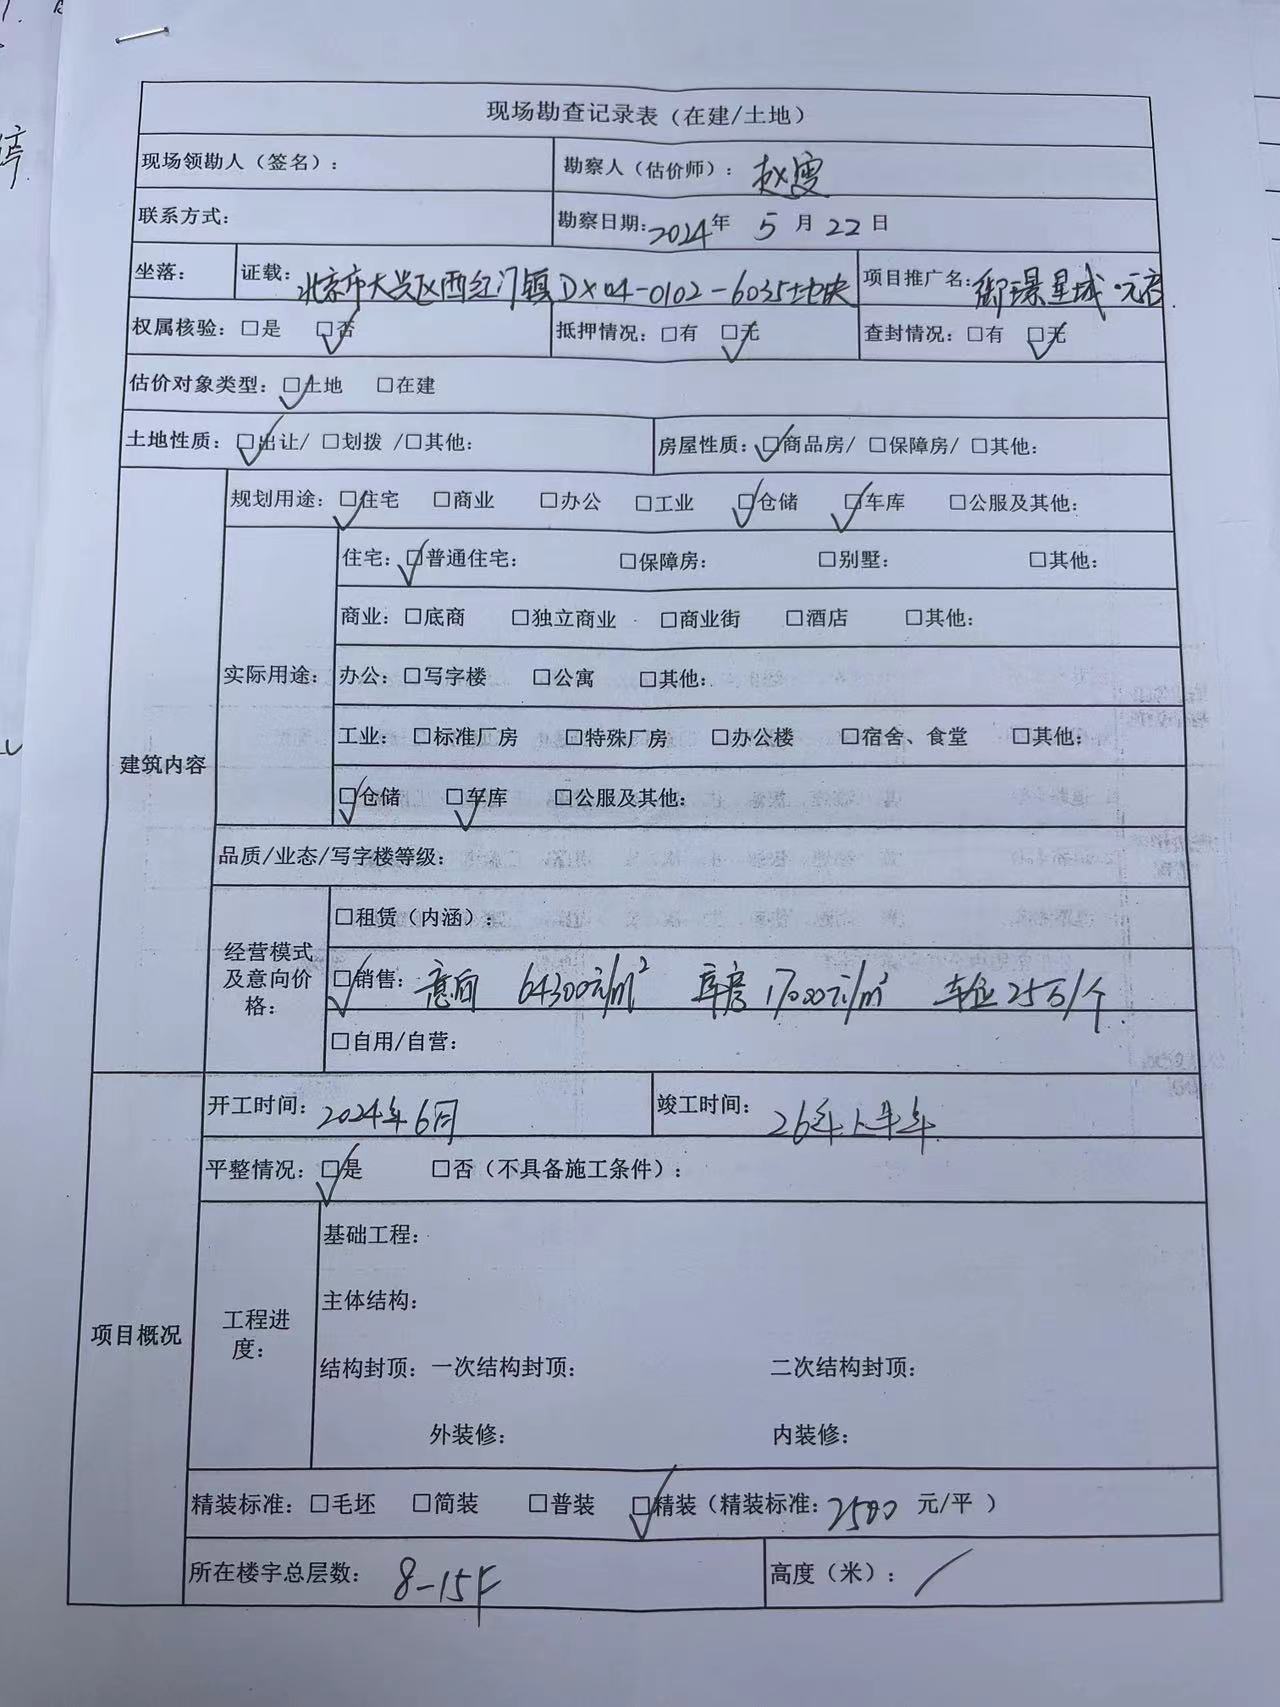 现场勘查记录表（在建/土地）
现场领勘人（签名）： 勘察人（估价师）：赵雯
联系方式： 勘察日期：2024年 5 月 22 日
坐落： 证载：北京市大兴区西红门镇DX04-0102-6035地块 项目推广名：御璟星城·元启
权属核验：□是 □否 抵押情况：□有 □无 查封情况：□有 □无
估价对象类型：□土地 □在建
土地性质：□出让/ □划拨 /□其他： 房屋性质：□商品房/ □保障房/ □其他：
建筑内容
规划用途：□住宅 □商业 □办公 □工业 □仓储 □车库 □公服及其他：
实际用途：
住宅：□普通住宅： □保障房： □别墅： □其他：
商业：□底商 □独立商业 □商业街 □酒店 □其他：
办公：□写字楼 □公寓 □其他：
工业：□标准厂房 □特殊厂房 □办公楼 □宿舍、食堂 □其他：
□仓储 □车库 □公服及其他：
品质/业态/写字楼等级：
经营模式
及意向价
格：
□租赁（内涵）：
□销售：意向 64300元/m² 库房 17000元/m² 车位 25万/个
□自用/自营：
项目概况
开工时间：2024年6月 竣工时间：26年上半年
平整情况：□是 □否（不具备施工条件）：
工程进
度：
基础工程：
主体结构：
结构封顶：一次结构封顶： 二次结构封顶：
外装修： 内装修：
精装标准：□毛坯 □简装 □普装 □精装（精装标准：2500 元/平 ）
所在楼宇总层数： 8-15F 高度（米）：/